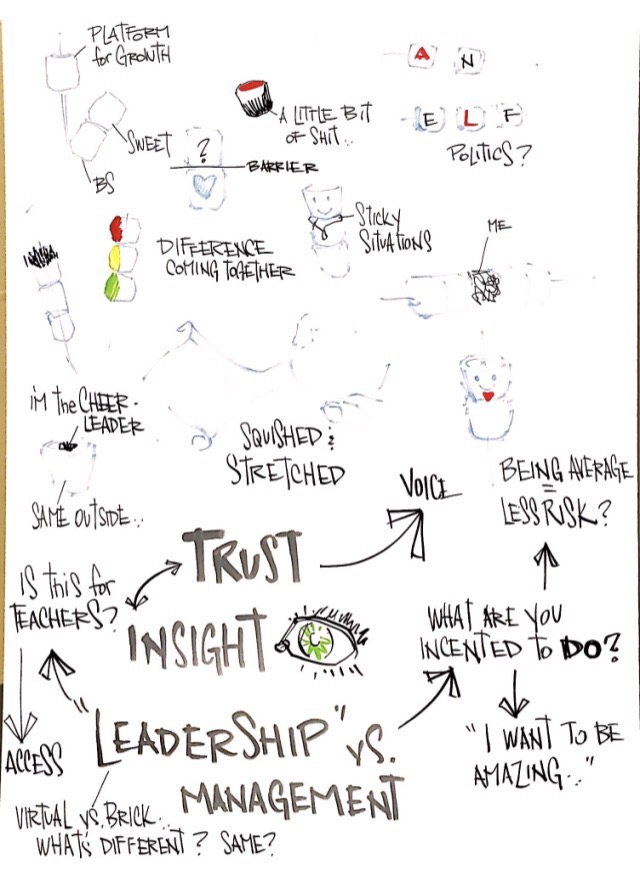 PLATFORM
for GROWTH
SWEET
BS
?
BARRIER
A LITTLE BIT
OF SHIT..
A N
E L F
POLITICS?
DIFFERENCE
COMING TOGETHER
STICKY
SITUATIONS
ME
I'M the CHEER-
LEADER
SAME OUTSIDE..
SQUISHED &
STRETCHED
VOICE
BEING AVERAGE
=
LESS RISK?
TRUST
IS this for
TEACHERS?
INSIGHT
WHAT ARE YOU
INCENTED to DO?
"LEADERSHIP" vs.
MANAGEMENT
ACCESS
"I WANT TO BE
AMAZING.."
VIRTUAL vs. BRICK..
WHAT'S DIFFERENT? SAME?